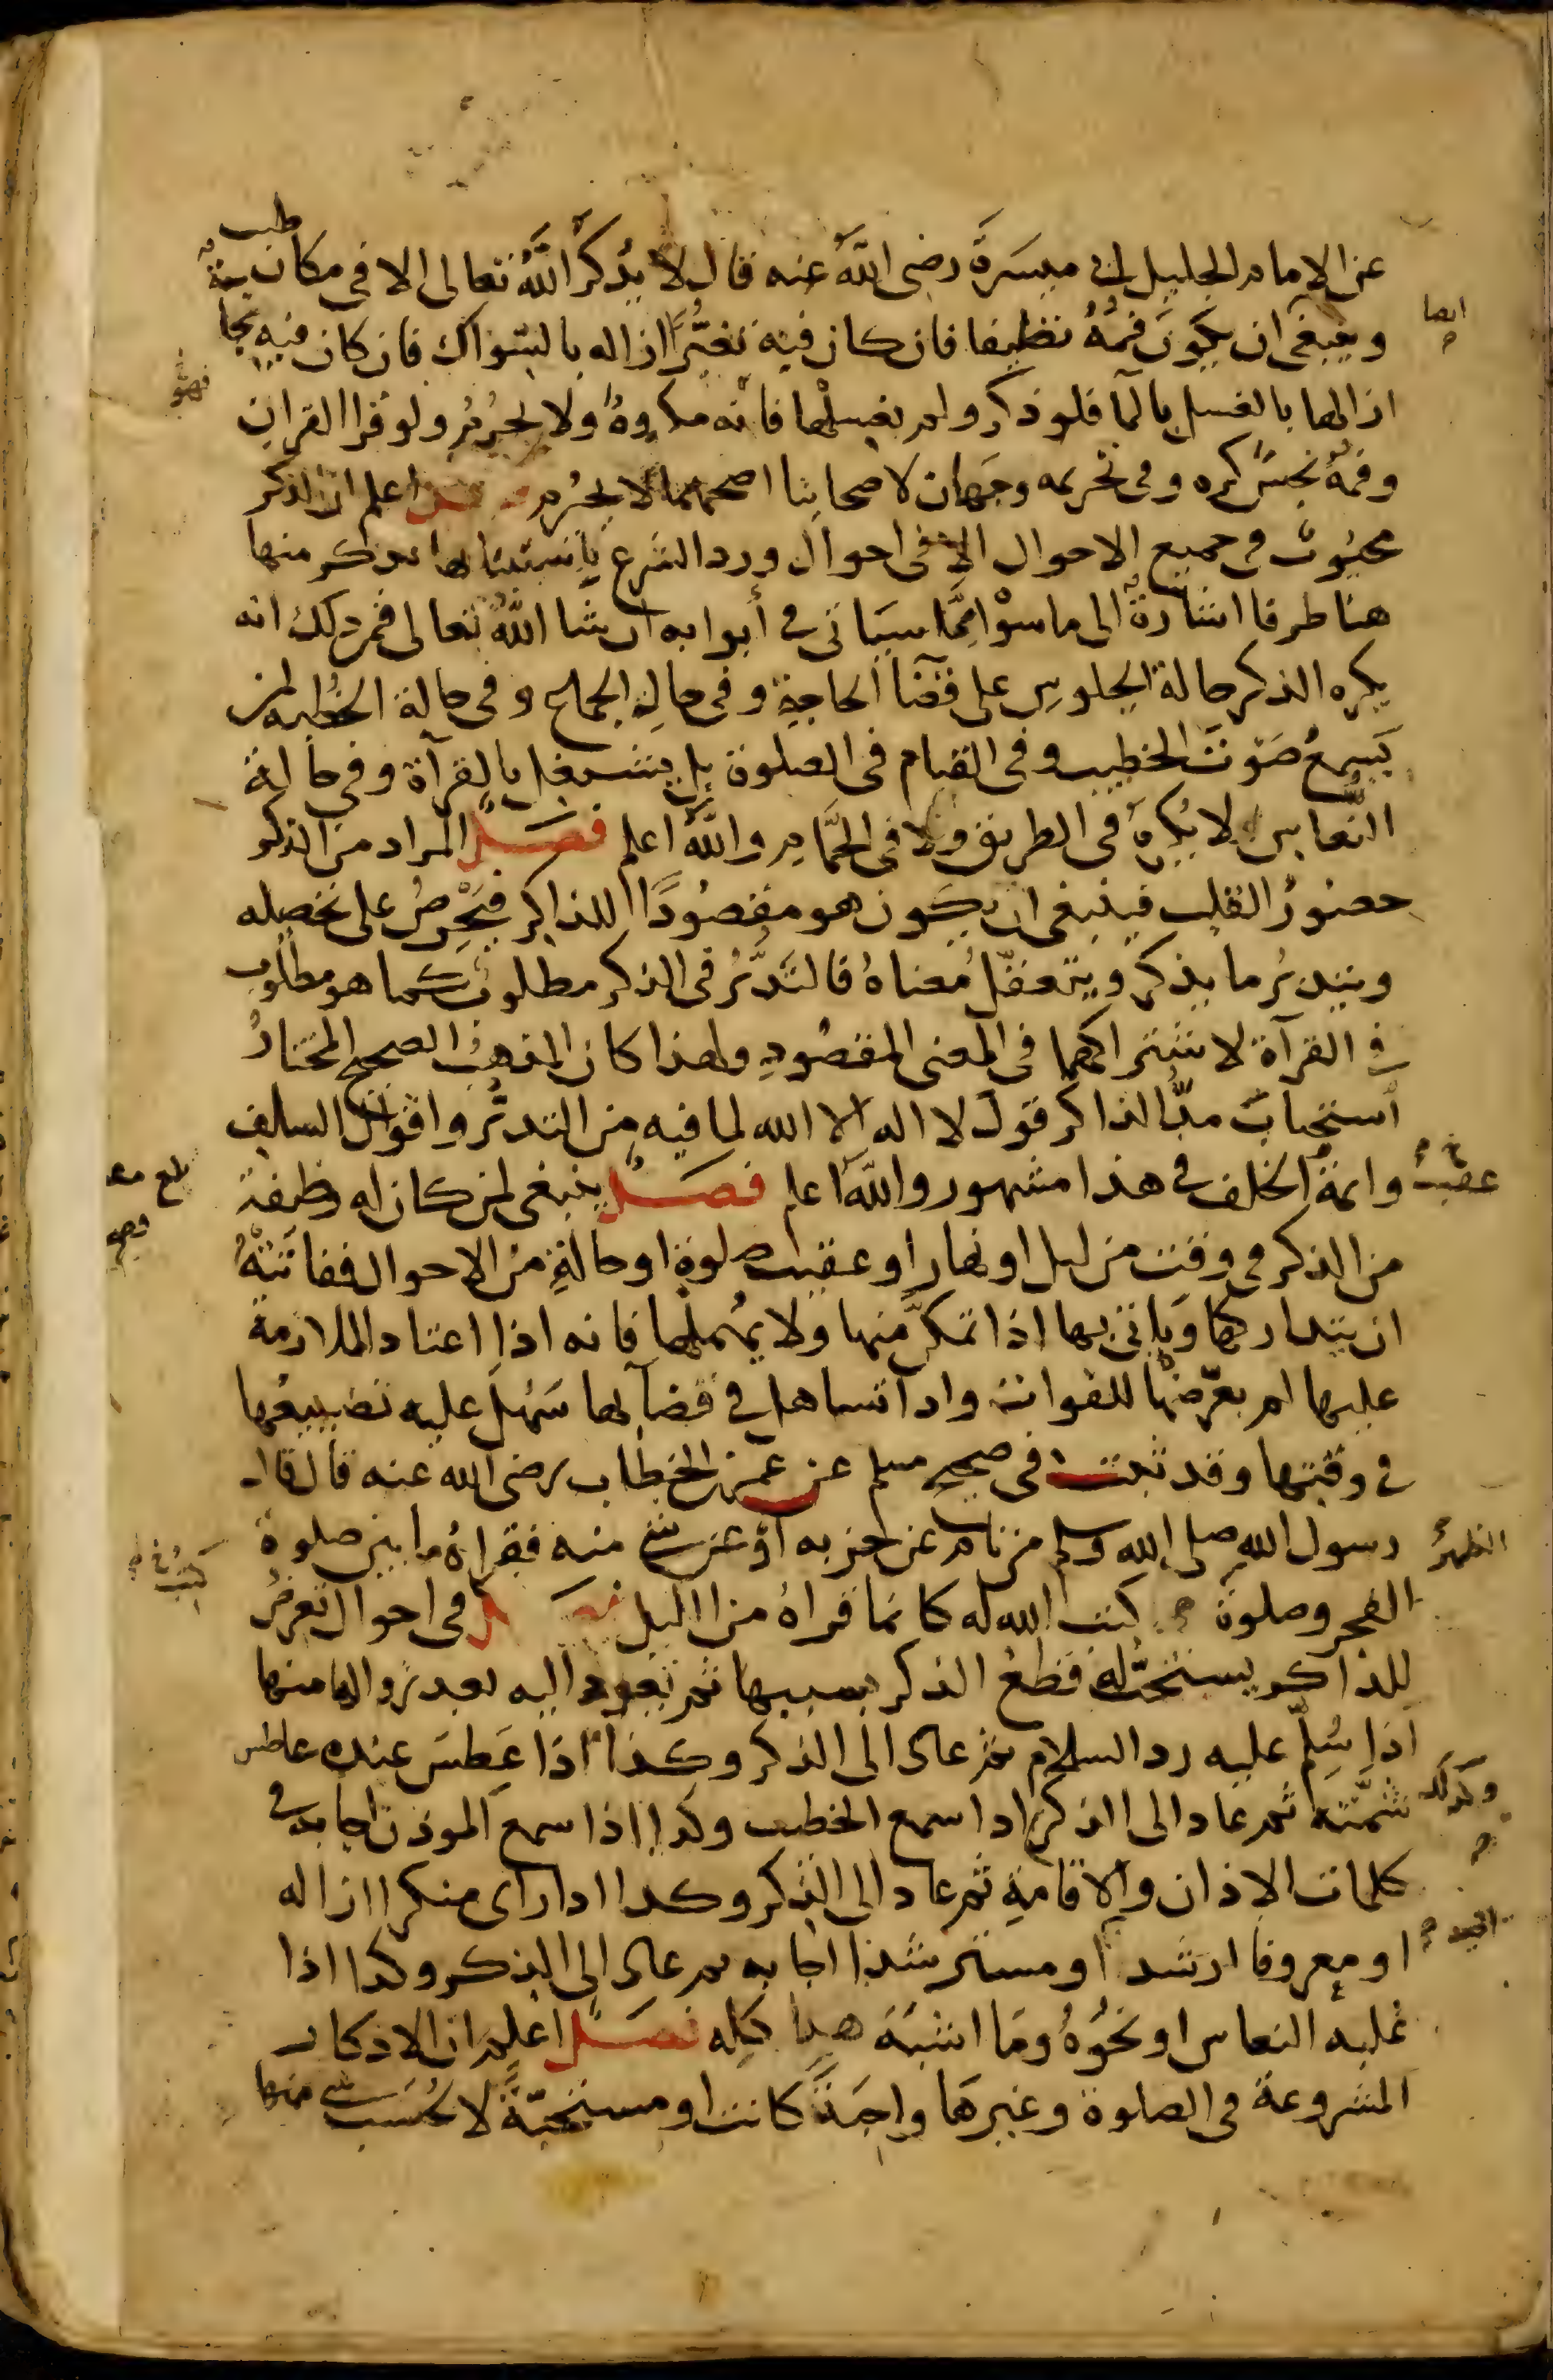 عن الامام الجليل ابى ميسرة رضى الله عنه قال لا يُذكر الله تعالى الا في مكان طيب
ايضا
وينبغي ان يكون فمه نظيفا فان كان فيه تغير ازاله بالسواك فان كان فيه نجاسة
ازالها بالغسل بالما فلو ذكر ولم يغسلها فانه مكروه ولا يحرم ولو قرا القران
وفمه نجس كره وفى تحريمه وجهان لاصحابنا اصحهما لا يحرم فصل اعلم ان الذكر
محبوب في جميع الاحوال الا في احوال ورد الشرع باستثنائها نذكر منها
هنا طرفا اشارة الى ما سواه مما سياتى في أبوابه ان شا الله تعالى فمن ذلك انه
يكره الذكر حالة الجلوس على قضا الحاجة وفى حالة الجماع وفى حالة الخطبة لمن
يسمع صوت الخطيب وفى القيام فى الصلوة بل يشتغل بالقرآة وفي حالة
النعاس ولا يكره فى الطريق ولا فى الحمّام والله اعلم فصل المراد من الذكر
حضور القلب فينبغى ان يكون هو مقصودا للذاكر فيحرص على تحصيله
ويتدبر ما يذكر ويتعقل معناه فالتدبر فى الذكر مطلوب كما هو مطلوب
في القرآة لاشتراكهما فى المعنى المقصود ولهذا كان المذهب الصحيح المختار
استحباب مد الذاكر قول لا اله الا الله لما فيه من التدبر واقوال السلف
وائمة الخلف في هذا مشهور والله اعلم فصل ينبغى لمن كان له وظيفة
عقيب
من الذكر في وقت من ليل او نهار او عقيب صلوة او حالة من الاحوال ففاتته
ان يتداركها وياتى بها اذا تمكن منها ولا يهملها فانه اذا اعتاد الملازمة
عليها لم يعرضها للفوات واذا تساهل في قضآئها سهل عليه تضييعها
في وقتها وقد ثبت فى صحيح مسلم عن عمر بن الخطاب رضى الله عنه قال قال
رسول الله صلى الله وسلم من نام عن حزبه او عن شئ منه فقراه ما بين صلوة
الظهر
الفجر وصلوة كتب الله له كانما قراه من الليل فصل فى احوال تعرض
للذاكر يستحب له قطع الذكر بسببها ثم يعود اليه بعد زوالها منها
اذا سلم عليه رد السلام ثم عاد الى الذكر وكذا اذا عطس عنده عاطس
وكذلك
شمته ثم عاد الى الذكر اذا سمع الخطيب وكذا اذا سمع الموذن اجابه في
كلمات الاذان والاقامة ثم عاد الى الذكر وكذا اذا راى منكرا ازاله
او معروفا ارشد او مسترشدا اجابه ثم عاد الى الذكر وكذا اذا
غلبه النعاس او نحوه وما اشبه هذا كله فصل اعلم ان الاذكار
المشروعة فى الصلوة وغيرها واجبة كانت او مستحبة لا يحسب شي منها